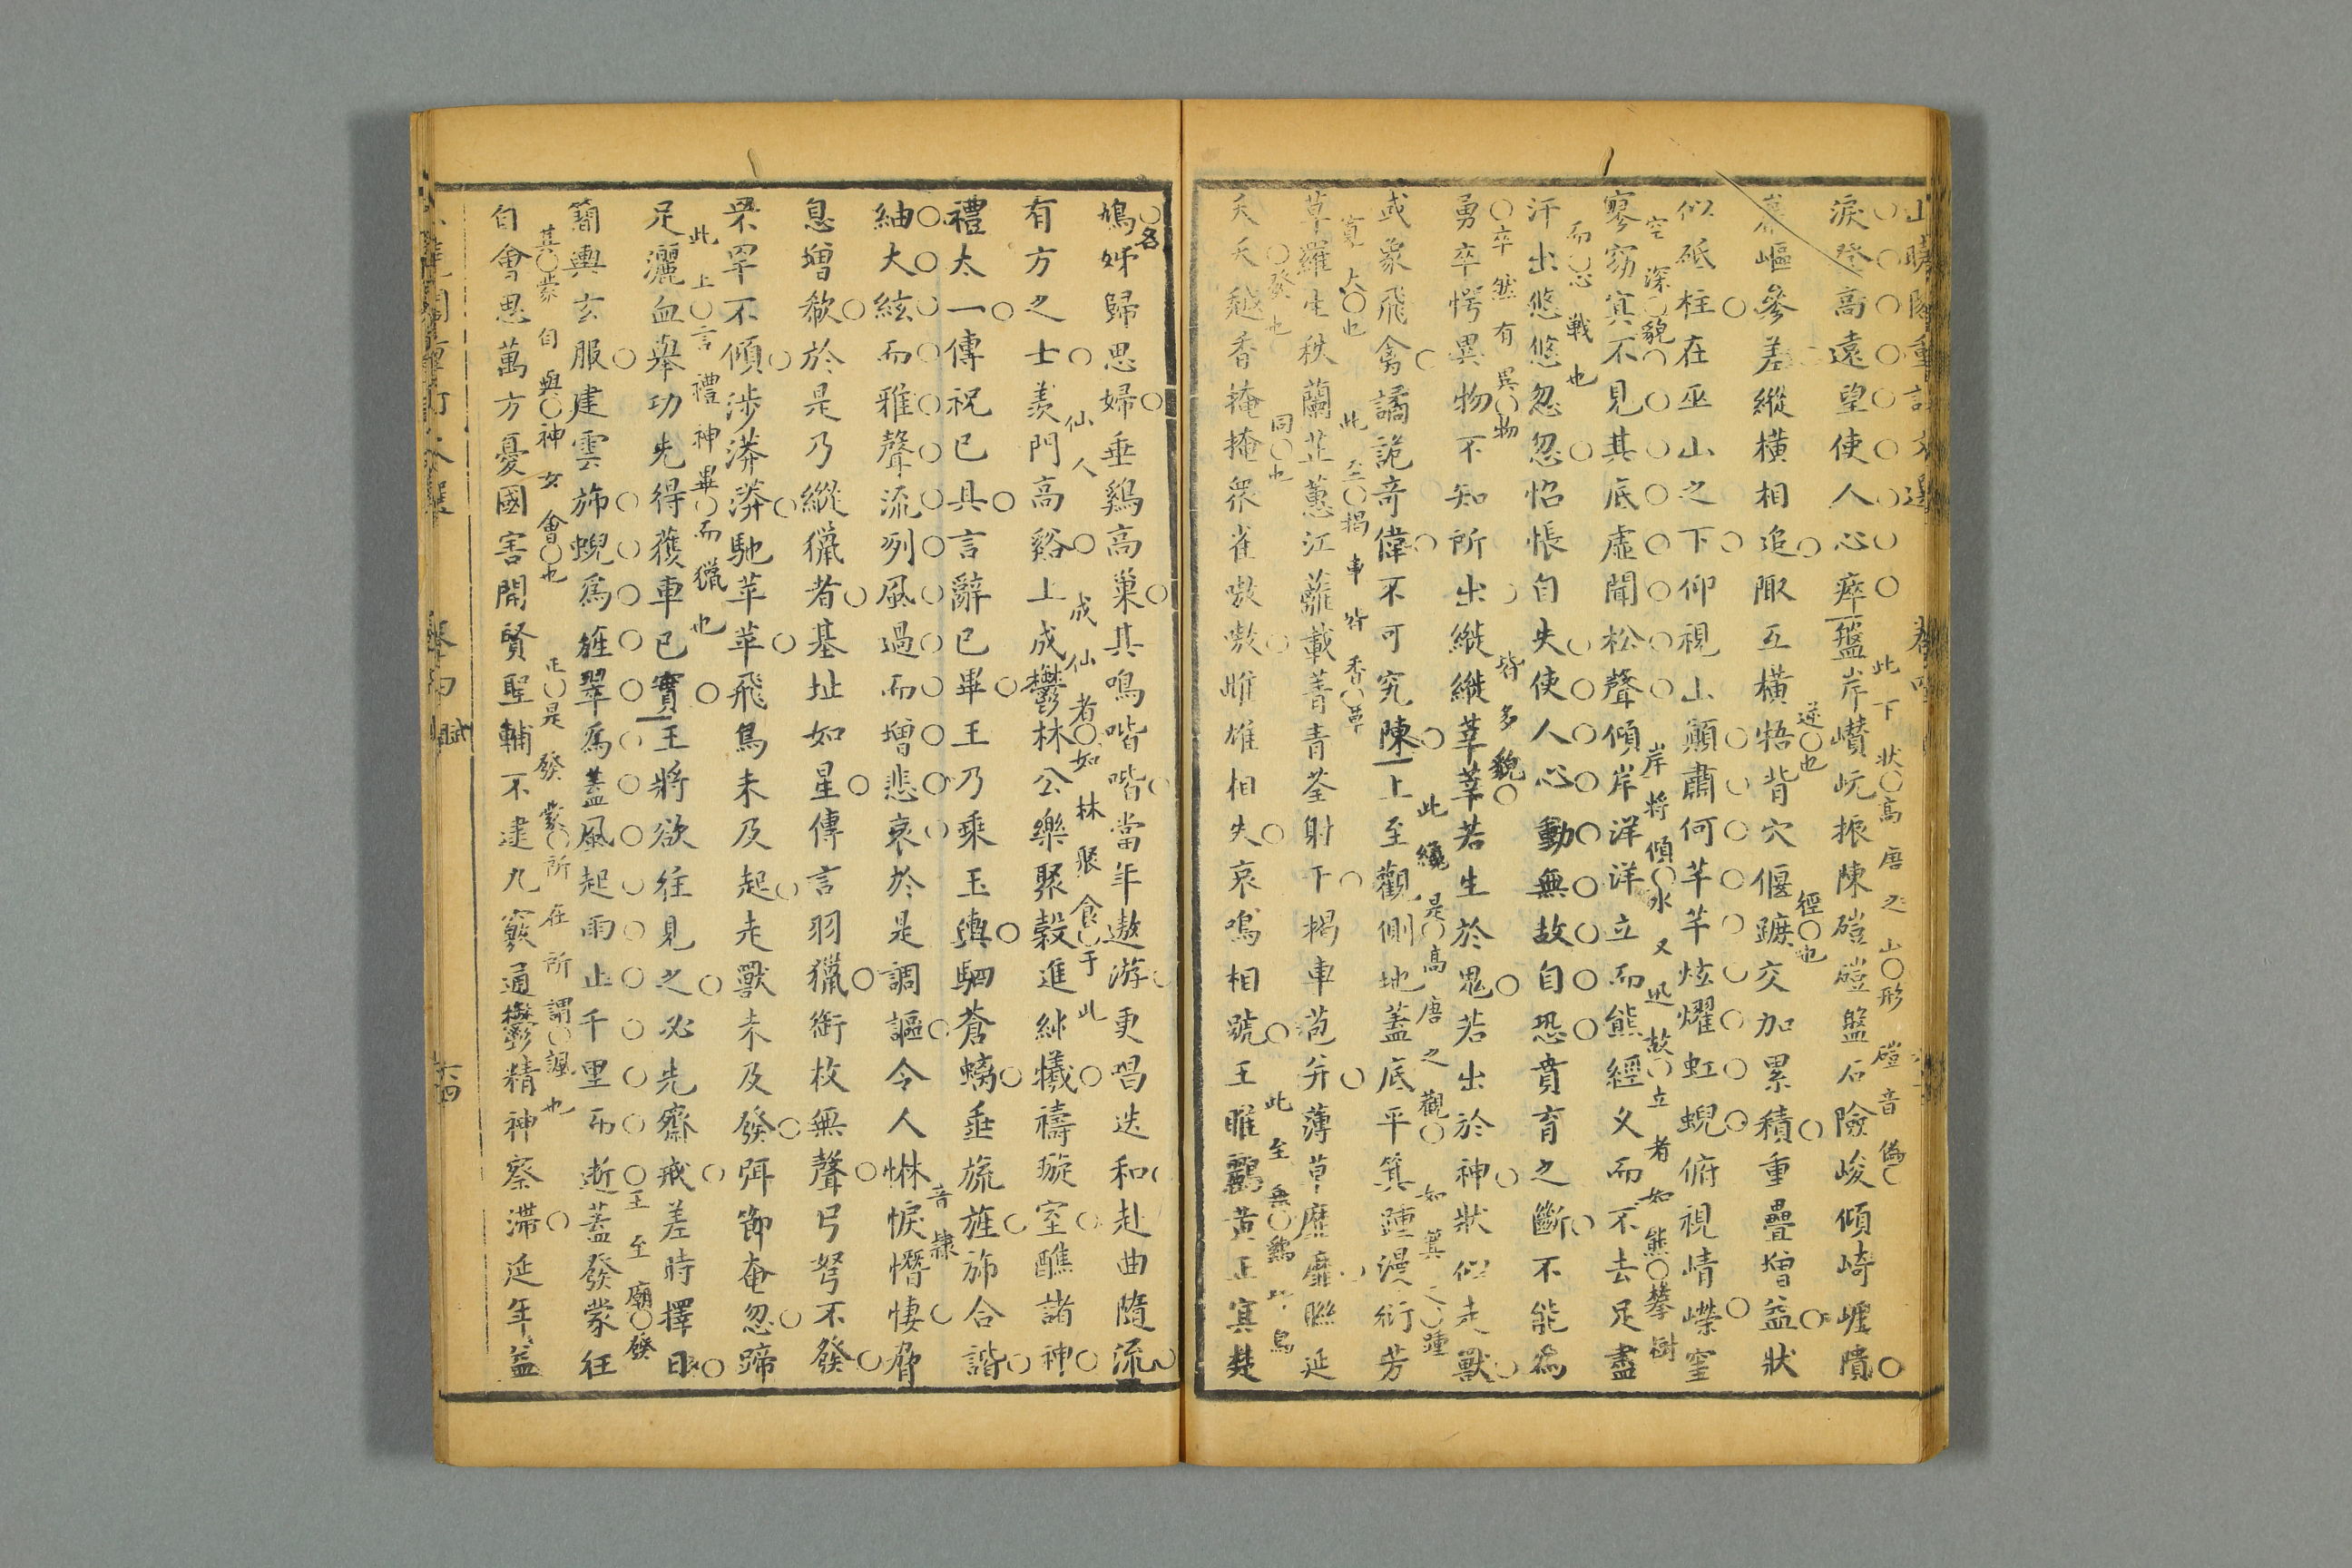 淚登高遠望使人心瘁盤岸巑岏振陳磑磑盤石險峻傾崎崕隤
此下狀○高唐之山○形 磑音
嶇參差縱橫相追陬互橫啎背穴偃蹠交加累積重疊增益狀
逆○也 徑○也
似砥柱在巫山之下仰視山顚肅何芊芊炫燿虹蜺俯視崝嶸窐
寥窈㝠不見其底虛聞松聲傾岸洋洋立而熊經乂而不去足盡
空深○貌 岸將傾○水又迅故○立者如熊○攀樹
汗出悠悠忽忽怊悵自失使人心動無故自恐賁育之斷不能爲
而○心戰也
勇卒愕異物不知所出縰縰莘莘若生於鬼若出於神狀似走獸
○卒然有異○物 皆多貌
或象飛禽譎詭奇偉不可究陳上至觀側地蓋底平箕踵漫衍芳
此纔是○高唐之觀○ 如箕之○踵
草羅生秋蘭茝蕙江蘺載菁青荃射干揭車苞并薄草靡靡聮延
草大○也 此至○揭車皆香○草
夭夭越香掩掩衆雀嗷嗷雌雄相失哀鳴相號王雎鸝黃正㝠楚
○發也 同○也 此至無○鷄 鳥
鳩姊歸思婦垂鷄高巢其鳴喈喈當年遨游更唱迭和赴曲隨流
○名
有方之士羨門高谿上成鬱林公樂聚榖進純犧禱璇室醮諸神
仙人 成仙者○如林聚食○于此
禮太一傳祝已具言辭已畢王乃乘玉輿駟蒼螭垂旒旌斾合諧
紬大絃而雅聲流冽風過而增悲哀於是調謳令人惏悷憯悽脅
音隸
息增欷於是乃縱獵者基址如星傳言羽獵銜枚無聲弓弩不發
罘罕不傾涉漭漭馳苹苹飛鳥未及起走獸未及發弭節奄忽蹄
足灑血舉功先得獲車已實王將欲往見之必先齋戒差時擇日
此上○言禮神畢○而獵也
簡輿玄服建雲斾蜺爲旌翠爲蓋風起雨止千里而逝蓋發蒙往
王至廟○發
自會思萬方憂國害開賢聖輔不逮九竅通鬱精神察滯延年益
其○蒙自與○神女會○也 正○是發蒙○所在所謂○諷也
卷四 賦 六四